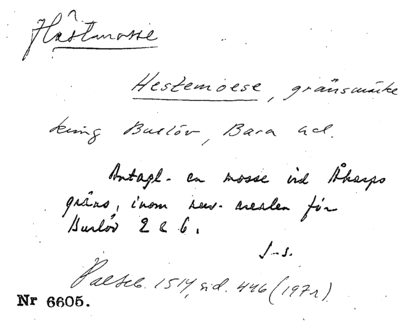 Hästmosse
Hestemoese, gränsmärke
kring Burlöv, Bara hd.
Antagl. en mosse vid Åkarps
gräns, inom nuv. arealen för
Burlöv 2 & 6.
Palteb. 1514, sid. 446 (197r).
Nr 6605.